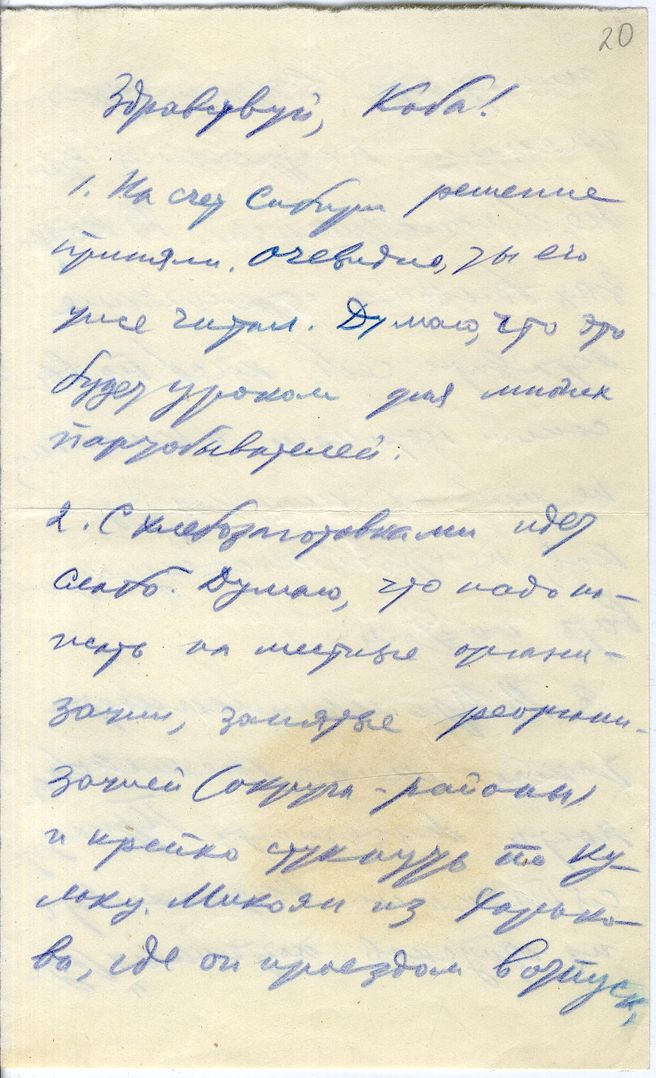 20
Здравствуй, Коба!
1. На счет Сибири решение
приняли. Очевидно, ты его
уже читал. Думаю, что это
будет уроком для многих
партобывателей.
2. С хлебозаготовками идет
слабо. Думаю, что надо на-
жать на местные органи-
зации, занятые реоргани-
зацией (округа - районы)
и крепко стукнуть по ку-
лаку. Микоян из Харько-
ва, где он проездом в отпуск,